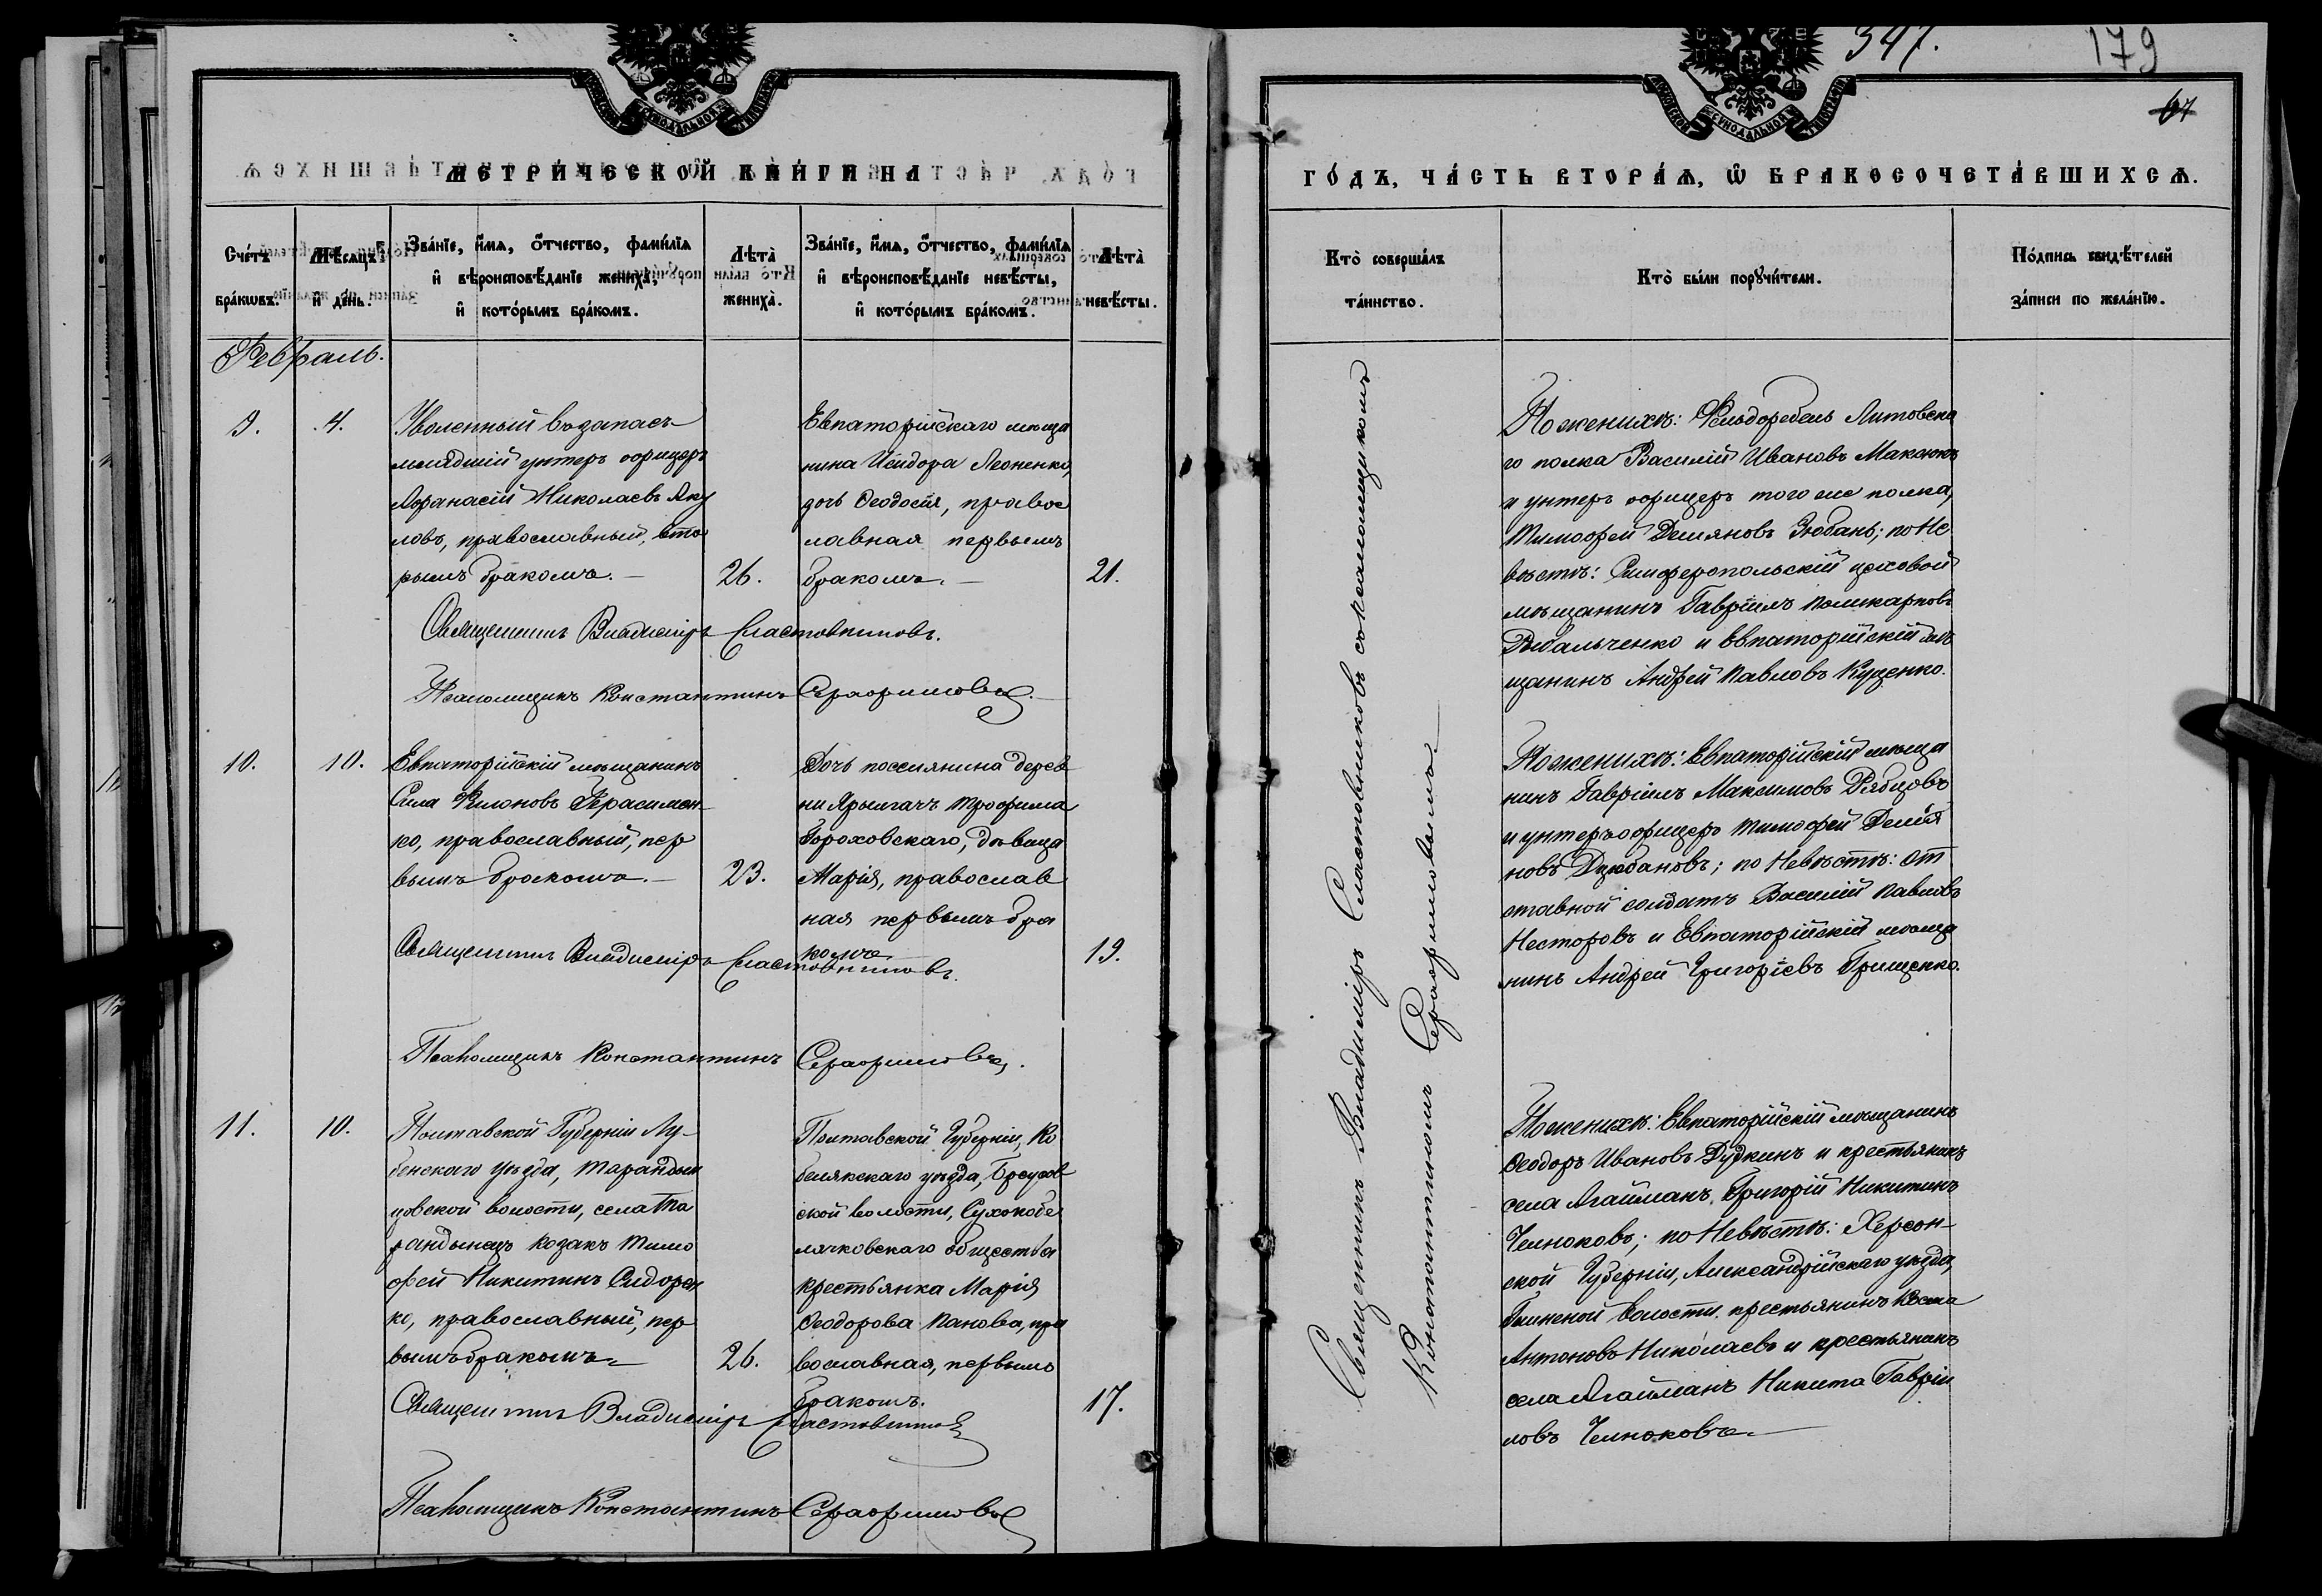 347.
179
67
МОСКОВСКОЙ СУНОДАЛЬНОЙ ТИПОГРАФІИ
МЕТРИ́ЧЕСКОЙ КНИ́ГИ НА
Сче́тъ бра́кѡвъ.
Мѣ́сяцъ и҆ де́нь.
Зва́нїе, и҆́мѧ, ѻ҆́тчество, фами́лїѧ
и҆ вѣроисповѣ́данїе жениха̀,
и҆ кото́рымъ бра́комъ.
Лѣ́та̀ жениха̀.
Зва́нїе, и҆́мѧ, ѻ҆́тчество, фами́лїѧ
и҆ вѣроисповѣ́данїе невѣ́сты,
и҆ кото́рымъ бра́комъ.
Лѣ́та̀ невѣ́сты.
Февраль.
9.
4.
Уволенный въ запасъ
младшій унтеръ офицеръ
Афанасій Николаевъ Яку
ловъ, православный, вто
рымъ бракомъ.
26.
Евпаторійскаго мѣща
нина Исидора Леоненко,
дочь Ѳеодосія, правос
лавная первымъ
бракомъ.
21.
Священникъ Владиміръ Сластовниковъ.
Псаломщикъ Константинъ Серафимовъ.
10.
10.
Евпаторійскій мѣщанинъ
Сила Филоновъ Герасимен
ко, православный, пер
вымъ бракомъ.
23.
Дочь поселянина дерев
ни Ярылгачъ Трофима
Гороховскаго, дѣвица
Марія, православ
ная первымъ бра
комъ.
19.
Священникъ Владиміръ Сластовниковъ.
Псаломщикъ Константинъ Серафимовъ.
11.
10.
Полтавской Губерніи Лу-
бенскаго уѣзда, Тарандын
цовской волости, села Та
рандынецъ козакъ Тимо
фей Никитинъ Сидорен
ко, православный, пер
вымъ бракомъ.
26.
Полтавской Губерніи, Ко
белякскаго уѣзда, Бреусов
ской волости, Сухокобе
лячковскаго общества
крестьянка Марія
Ѳеодорова Панова, пра
вославная, первымъ
бракомъ.
17.
Священникъ Владиміръ Сластовниковъ
Псаломщикъ Константинъ Серафимовъ
МОСКОВСКОЙ СУНОДАЛЬНОЙ ТИПОГРАФІИ
ГО́ДЪ, ЧА́СТЬ ВТОРА́Ѧ, Ѽ БРАКОСОЧЕТА́ВШИХСѦ.
Кто̀ соверша́лъ
та́инство.
Кто̀ бы́ли порꙋчи́тели.
По́дпись свидѣ́телей
за́писи по жела́нїю.
Священникъ Владиміръ Сластовниковъ съ псаломщикомъ
Константиномъ Серафимовымъ.
По женихѣ: Фельдфебель Литовска
го полка Василій Ивановъ Макаюкъ
и унтеръ офицеръ того же полка,
Тимофей Демяновъ Зюбанъ; по Не
вѣстѣ: Симферопольскій цеховой
мѣщанинъ Гавріилъ Поликарповъ
Рыбальченко и Евпаторійскій мѣ
щанинъ Андрей Павловъ Куценко.
По женихѣ: Евпаторійскій мѣща
нинъ Гавріилъ Максимовъ Рябцовъ
и унтеръ офицеръ Тимофей Демія
новъ Дзюбановъ; по Невѣстѣ: от
ставной солдатъ Василій Павловъ
Несторовъ и Евпаторійскій мѣща
нинъ Андрей Григоріевъ Грищенко.
По женихѣ: Евпаторійскій мѣщанинъ
Ѳеодоръ Ивановъ Дудкинъ и крестьянинъ
села Агайманъ, Григорій Никитинъ
Челноковъ; по Невѣстѣ: Херсон-
ской Губерніи, Александрійскаго уѣзда,
волости крестьянинъ Косма
Антоновъ Николаевъ и крестьянинъ
села Агайманъ Никита Гавріи
ловъ Челноковъ.